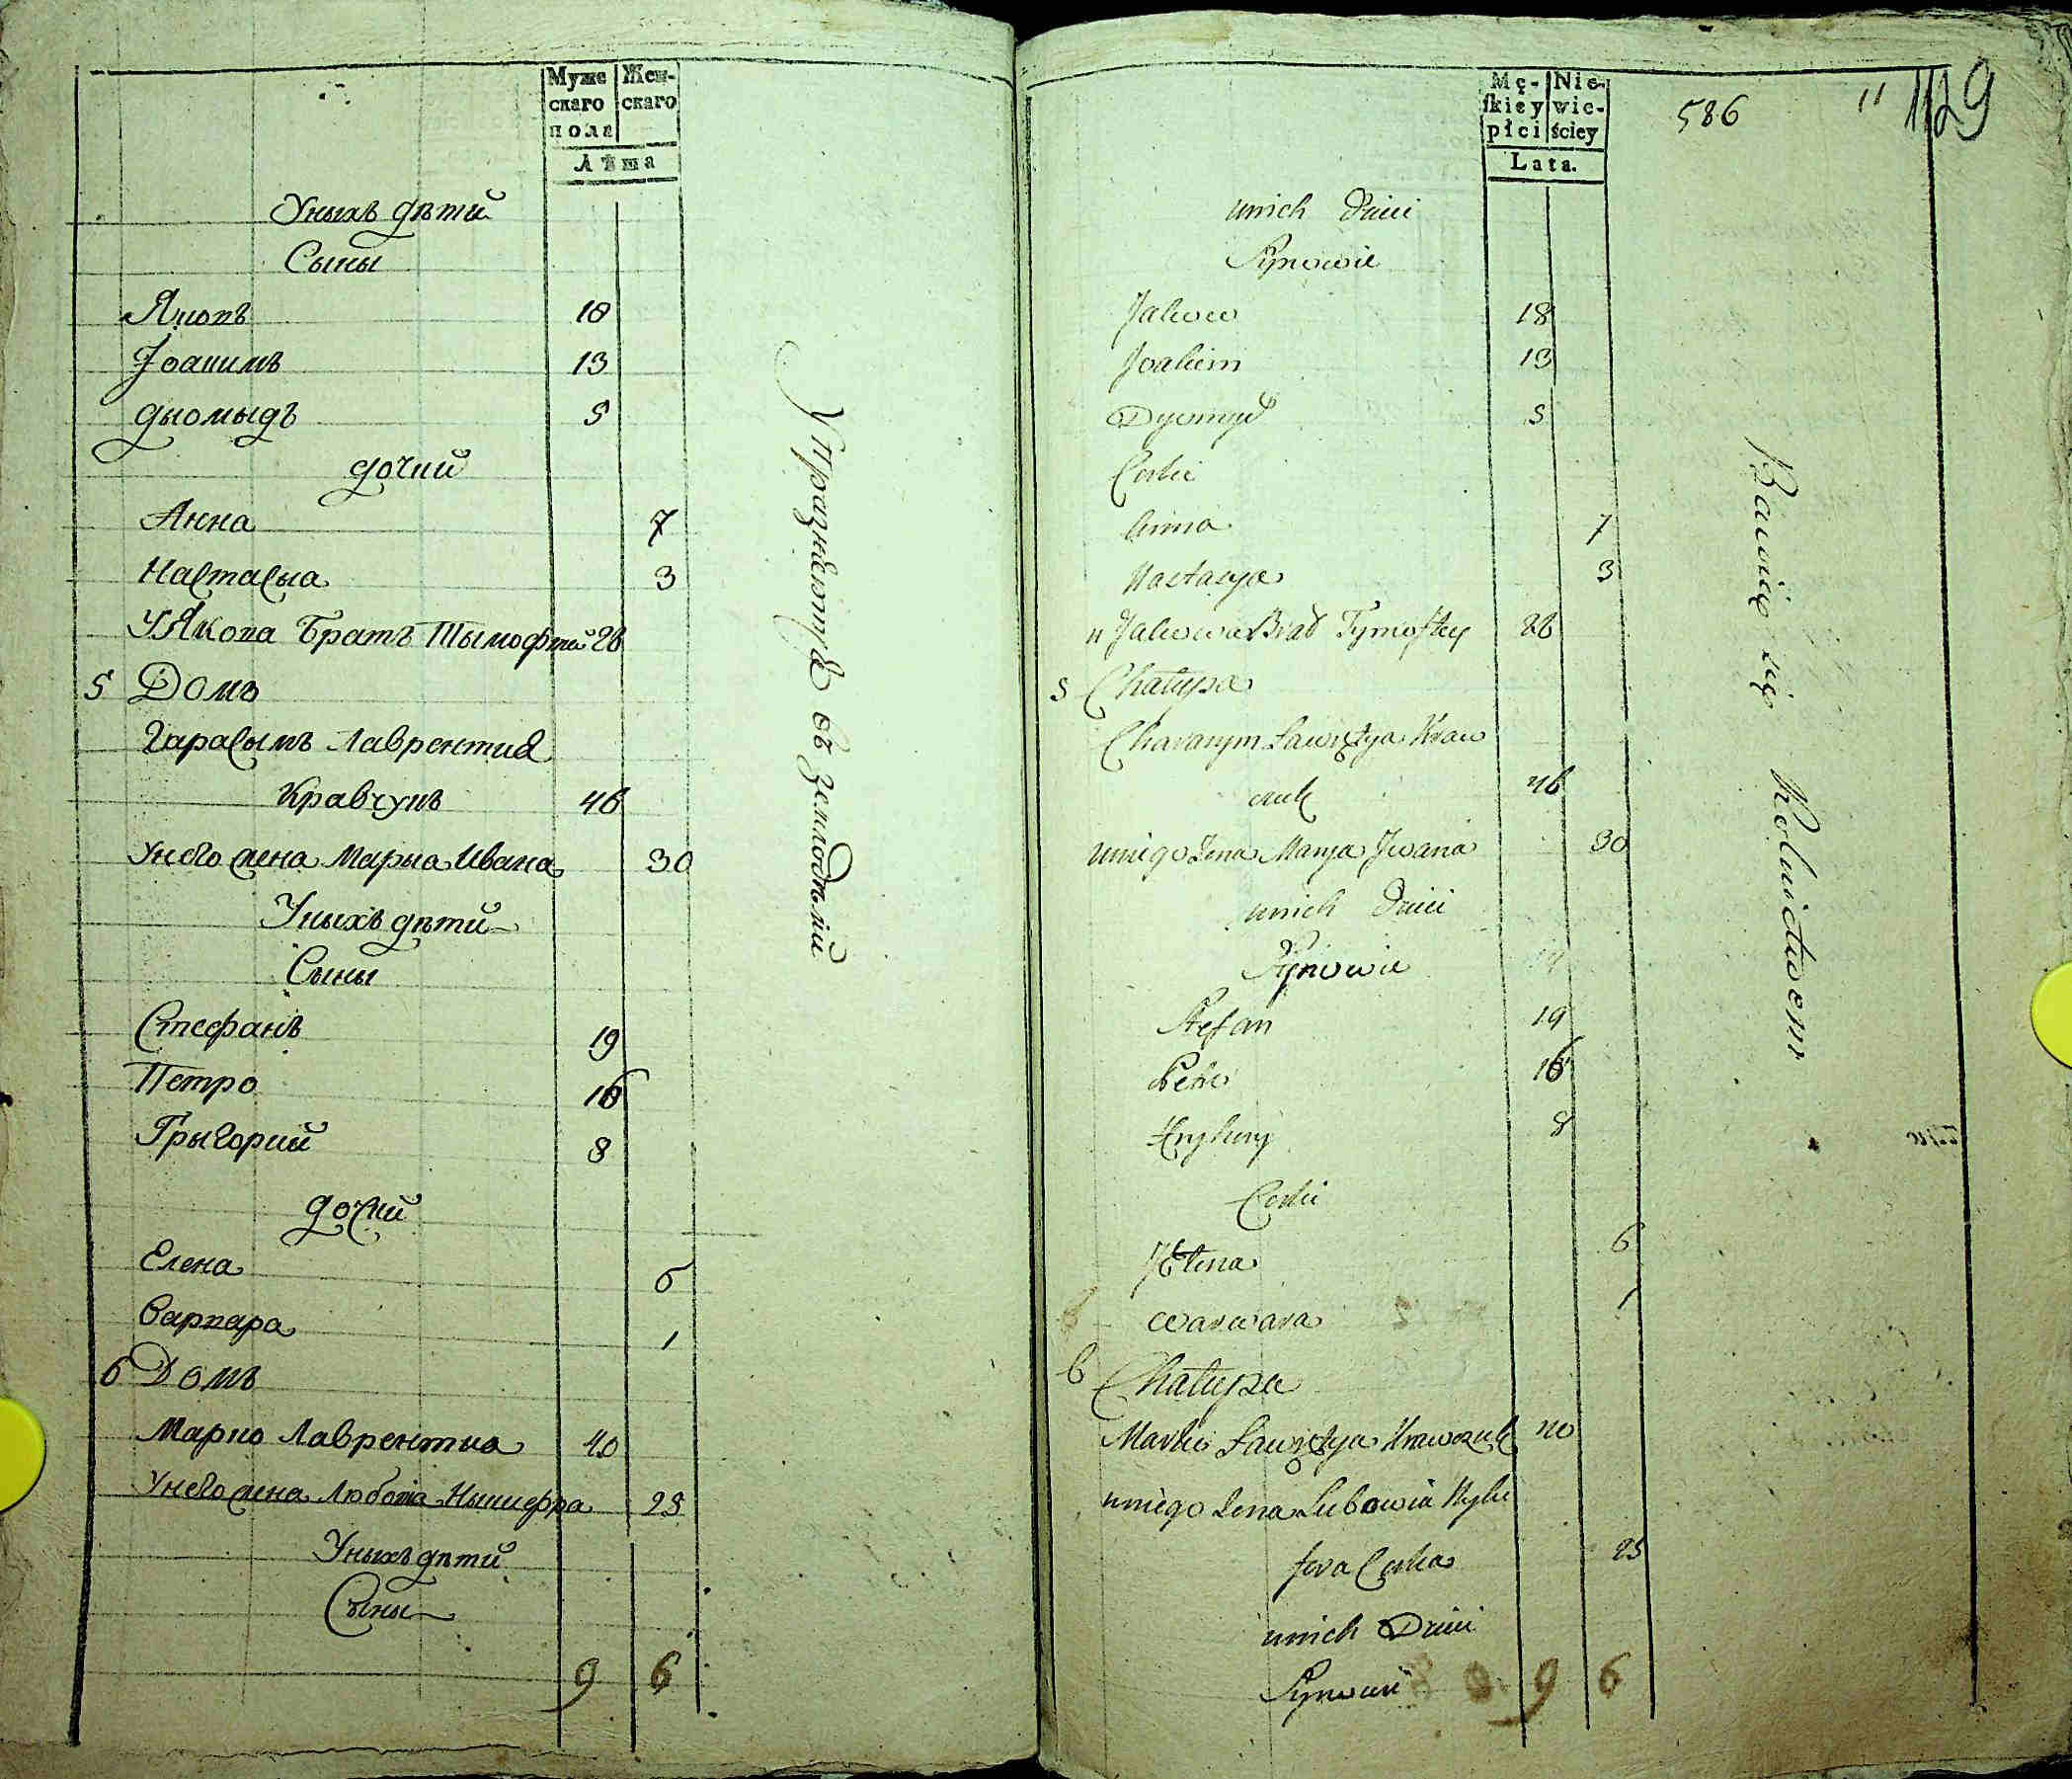 Муже
скаго
пола
Жен-
скаго
Лѣта
Уныхъ дѣти
Сыны
Якопъ 18
Іоакимъ 13
дыомыдъ 5
дочки
Анна 7
Настасыа 3
У Якопа Братъ Тымофтей 26
5 Домъ
Гарасымъ Лаврентиа
Кравчукъ 46
Унего жена Марыа Ивана 30
Уныхъ дѣти
Сыны
Стефанъ 19
Петро 16
Грыгорий 8
дочки
Елена 6
Варвара 1
6 Домъ
Марко Лаврентиа 40
Унего жена Любовіа Ныкифра 25
Уныхъ дѣти
Сыны
9 6
Упражнѣютца въ Земледѣліи
Mę-
skiey
płci
Nie-
wie-
ściey
Lata.
586
11
1129
unich Dzieci
Synowie
Jakow 18
Joakim 13
Dyomyd 5
Corki
Anna 7
Nastasya 3
u Jakowa Brat Tymoftey 26
5 Chałupa
Charasym Ławrętya Kraw
czuk 46
uniego Żona Marya Jwana 30
unich Dzieci
Synowie
Stefan 19
Petro 16
Hryhory 8
Corki
Jelena 6
Warwara 1
6 Chałupa
Marko Ławrętya Krawczuk 40
uniego Żona Lubowia Nyki
fora Corka 25
unich Dzieci
Synowie
9 6
Bawią się Rolnictwem